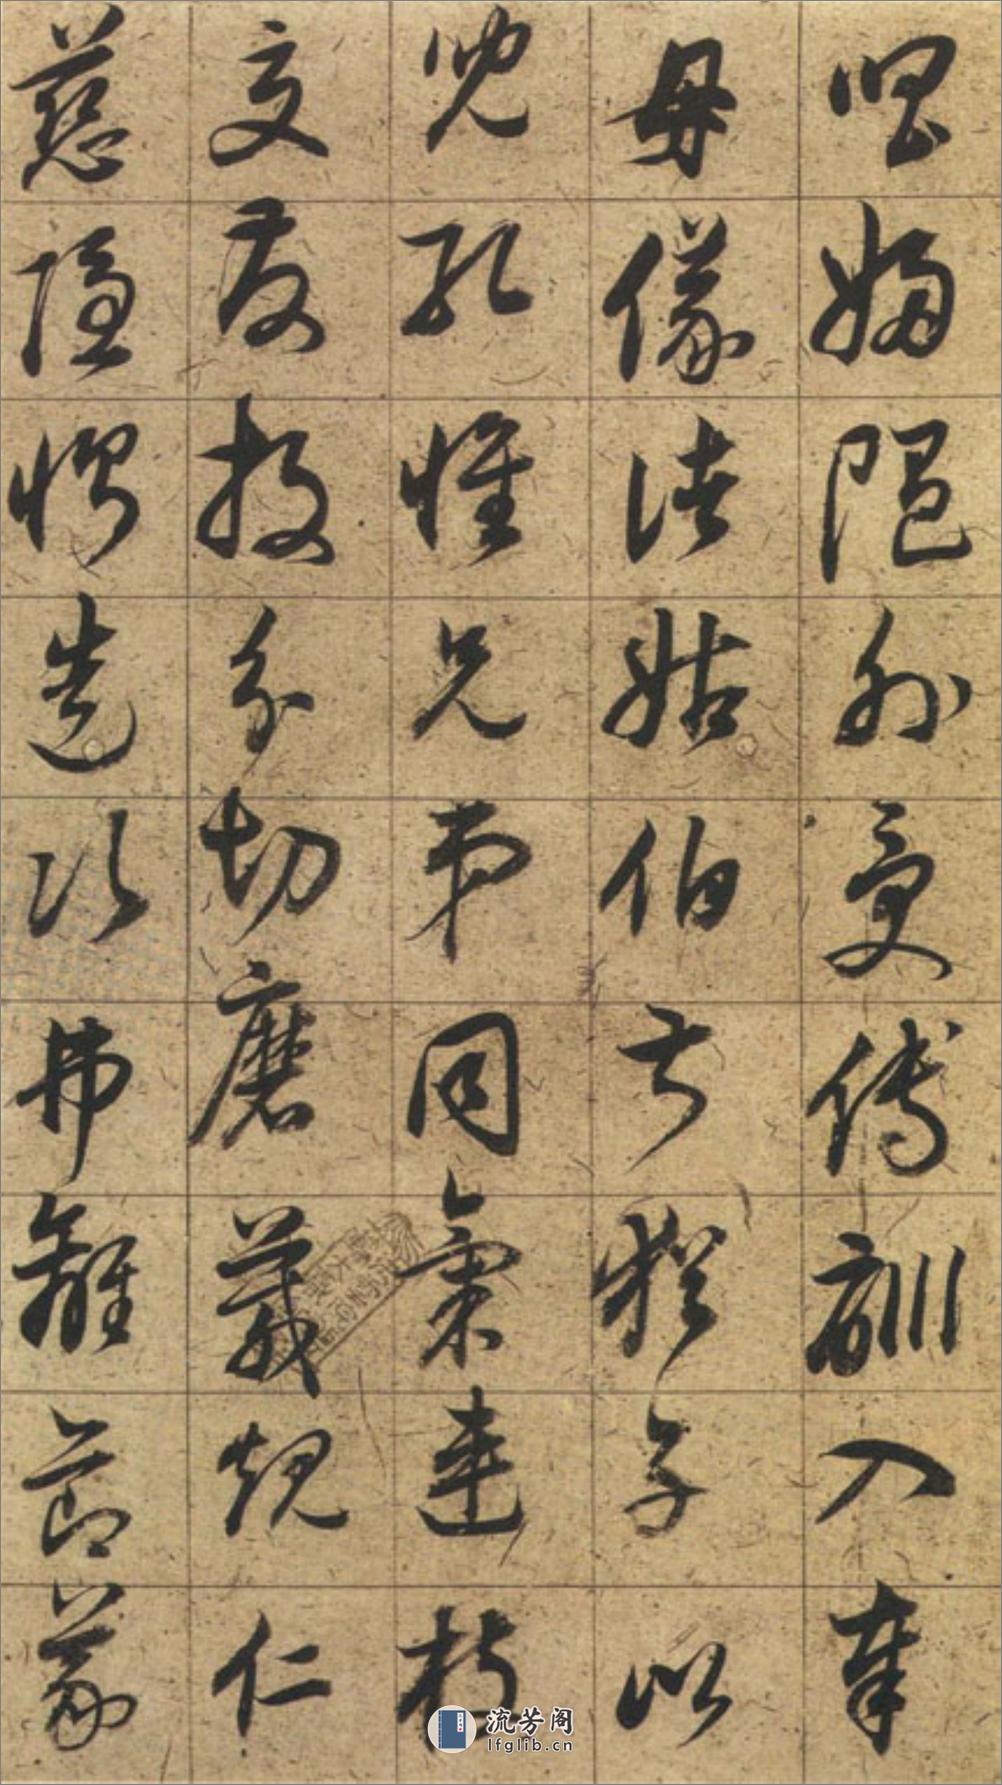 唱婦随外受傅訓入奉
母儀諸姑伯叔猶子比
兒孔懷兄弟同氣連枝
交友投分切磨箴規仁
慈隱惻造次弗離節義
流芳阁
lfglib.cn